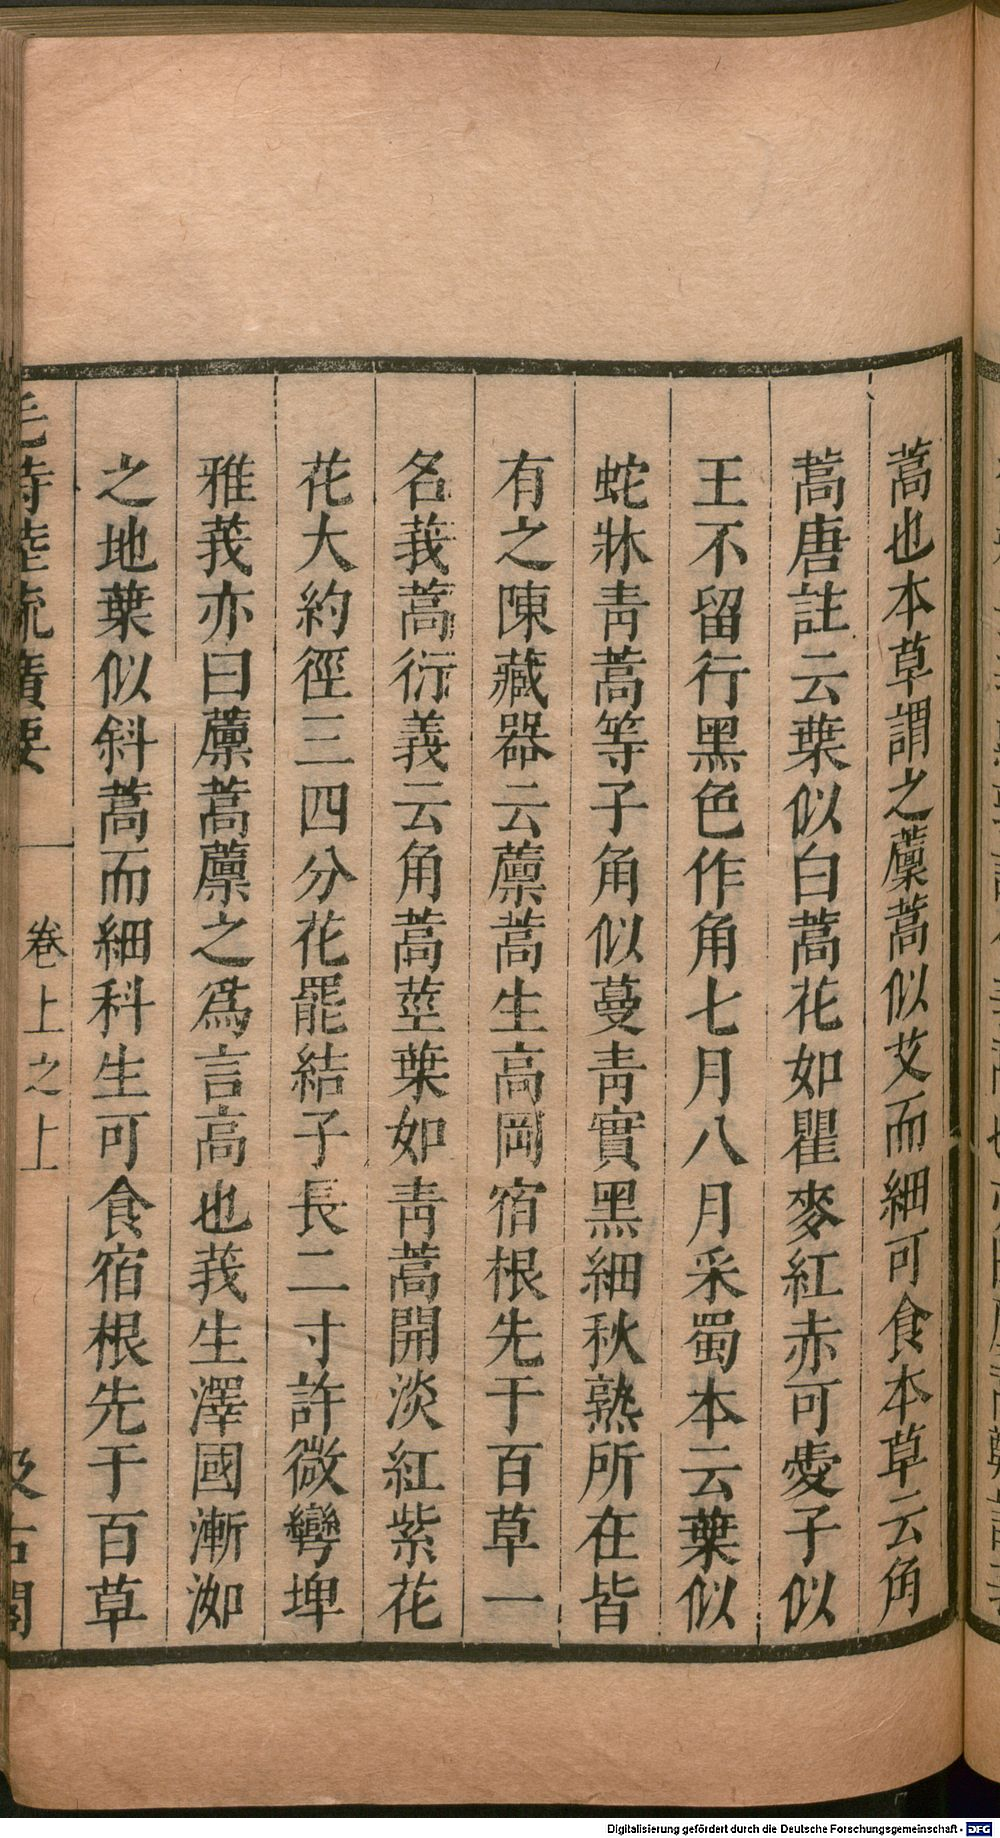 蒿也本草謂之藨蒿似艾而細可食本草云角
蒿唐註云葉似白蒿花如瞿麥紅赤可愛子似
王不留行黑色作角七月八月采蜀本云葉似
蛇牀青蒿等子角似蔓青實黑細秋熟所在皆
有之陳藏器云藨蒿生高岡宿根先于百草一
名莪蒿衍義云角蒿莖葉如青蒿開淡紅紫花
花大約徑三四分花罷結子長二寸許微彎埤
雅莪亦曰藨蒿藨之爲言高也莪生澤國漸洳
之地葉似斜蒿而細科生可食宿根先于百草
毛詩陸疏廣要 卷上之上 汲古閣
Digitalisierung gefördert durch die Deutsche Forschungsgemeinschaft - DFG